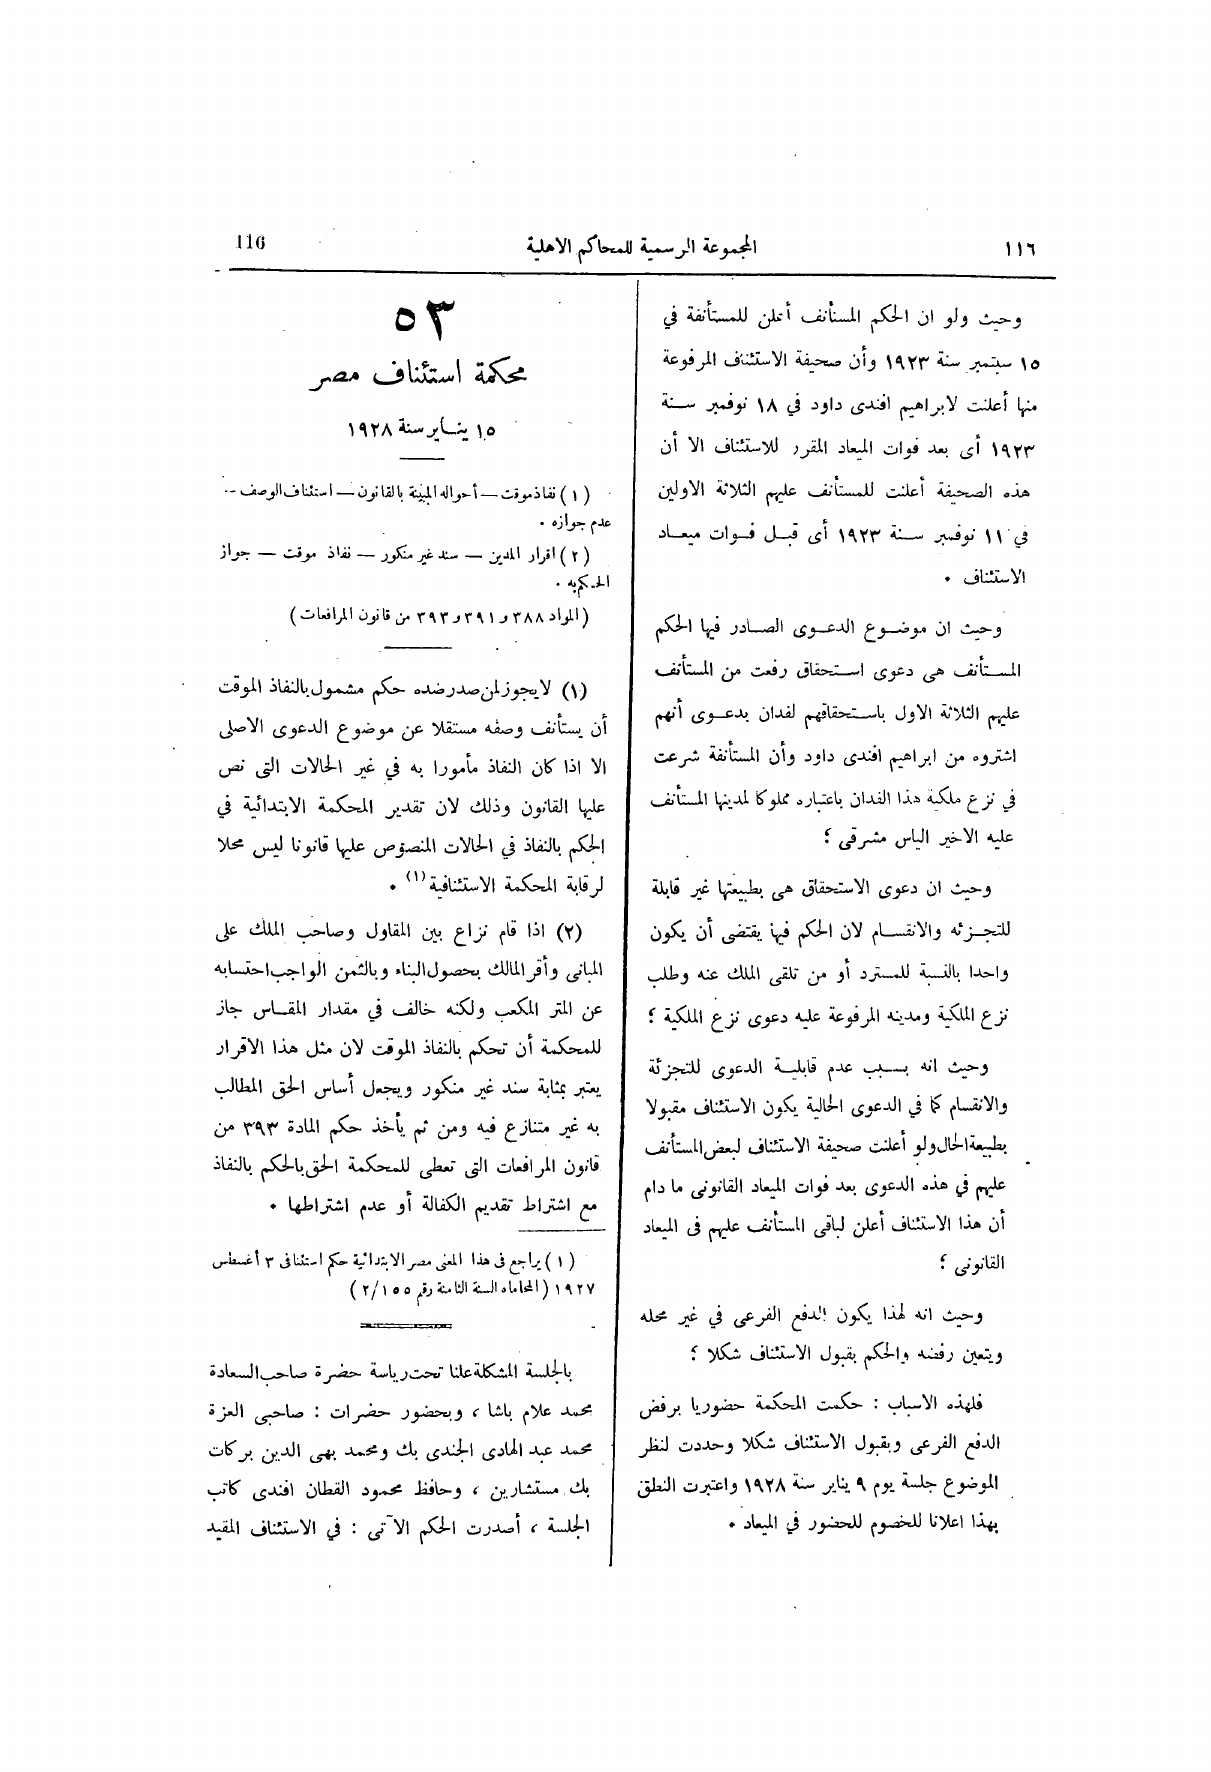 ١١٦
المجموعة الرسمية للمحاكم الاهلية
116
وحيث ولو ان الحكم المستأنف أعلن للمستأنفة في
١٥ سبتمبر سنة ١٩٢٣ وأن صحيفة الاستئناف المرفوعة
منها أعلنت لابراهيم افندى داود في ١٨ نوفمبر سنة
١٩٢٣ أى بعد فوات الميعاد المقرر للاستئناف الا أن
هذه الصحيفة أعلنت للمستأنف عليهم الثلاثة الاولين
في ١١ نوفمبر سنة ١٩٢٣ أى قبل فوات ميعاد
الاستئناف .
وحيث ان موضوع الدعوى الصادر فيها الحكم
المستأنف هى دعوى استحقاق رفعت من المستأنف
عليهم الثلاثة الاول باستحقاقهم لفدان بدعوى أنهم
اشتروه من ابراهيم افندى داود وأن المستأنفة شرعت
في نزع ملكية هذا الفدان باعتباره مملوكا لمدينها المستأنف
عليه الاخير الياس مشرقى ؛
وحيث ان دعوى الاستحقاق هى بطبيعتها غير قابلة
للتجزئه والانقسام لان الحكم فيها يقتضى أن يكون
واحدا بالنسبة للمسترد أو من تلقى الملك عنه وطلب
نزع الملكية ومدينه المرفوعة عليه دعوى نزع الملكية ؛
وحيث انه بسبب عدم قابلية الدعوى للتجزئة
والانقسام كما في الدعوى الحالية يكون الاستئناف مقبولا
بطبيعة الحال ولو أعلنت صحيفة الاستئناف لبعض المستأنف
عليهم في هذه الدعوى بعد فوات الميعاد القانونى ما دام
أن هذا الاستئناف أعلن لباقى المستأنف عليهم فى الميعاد
القانونى ؛
وحيث انه لهذا يكون الدفع الفرعى في غير محله
ويتعين رفضه والحكم بقبول الاستئناف شكلا ؛
فلهذه الاسباب : حكمت المحكمة حضوريا برفض
الدفع الفرعى وبقبول الاستئناف شكلا وحددت لنظر
الموضوع جلسة يوم ٩ يناير سنة ١٩٢٨ واعتبرت النطق
بهذا اعلانا للخصوم للحضور في الميعاد .
٥٣
محكمة استئناف مصر
١٥ يناير سنة ١٩٢٨
(١) نفاذ موقت — أحواله المبينة بالقانون — استئناف الوصف --
عدم جوازه .
(٢) اقرار المدين — سند غير منكور — نفاذ موقت — جواز
الحكم به .
(المواد ٣٨٨ و ٣٩١ و ٣٩٣ من قانون المرافعات)
(١) لا يجوز لمن صدر ضده حكم مشمول بالنفاذ الموقت
أن يستأنف وصفه مستقلا عن موضوع الدعوى الاصلى
الا اذا كان النفاذ مأمورا به في غير الحالات التى نص
عليها القانون وذلك لان تقدير المحكمة الابتدائية في
الحكم بالنفاذ في الحالات المنصوص عليها قانونا ليس محلا
لرقابة المحكمة الاستئنافية (١) .
(٢) اذا قام نزاع بين المقاول وصاحب الملك على
المبانى وأقر المالك بحصول البناء وبالثمن الواجب احتسابه
عن المتر المكعب ولكنه خالف في مقدار المقاس جاز
للمحكمة أن تحكم بالنفاذ الموقت لان مثل هذا الاقرار
يعتبر بمثابة سند غير منكور ويجعل أساس الحق المطالب
به غير متنازع فيه ومن ثم يأخذ حكم المادة ٣٩٣ من
قانون المرافعات التى تعطى للمحكمة الحق بالحكم بالنفاذ
مع اشتراط تقديم الكفالة أو عدم اشتراطها .
(١) يراجع فى هذا المعنى مصر الابتدائية حكم استئنافى ٣ أغسطس
١٩٢٧ (المحاماه السنة الثامنة رقم ٢/١٥٥)
بالجلسة المشكلة علنا تحت رياسة حضرة صاحب السعادة
محمد علام باشا ، وبحضور حضرات : صاحبى العزة
محمد عبد الهادى الجندى بك ومحمد بهى الدين بركات
بك مستشارين ، وحافظ محمود القطان افندى كاتب
الجلسة ، أصدرت الحكم الآتى : في الاستئناف المقيد